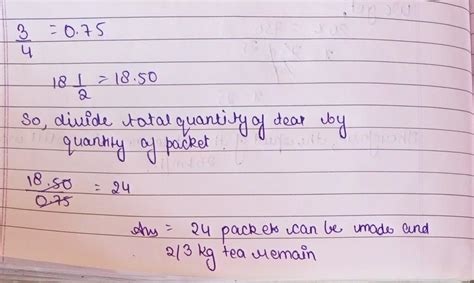 3/4 = 0.75
18 1/2 = 18.50
So, divide total quantity of tear by
quantity of packet.
18.50/0.75 = 24
Ans = 24 packets can be made and
2/3 kg tea remain